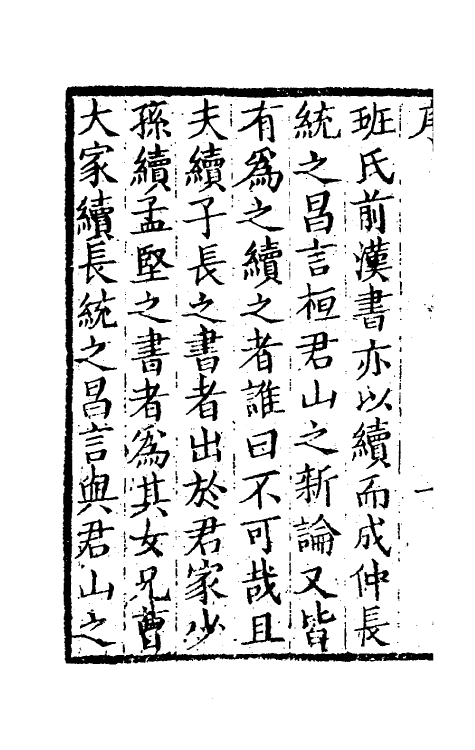 序
一
班氏前漢書亦以續而成仲長
統之昌言桓君山之新論又皆
有為之續之者誰曰不可哉且
夫續子長之書者出於君家少
孫續孟堅之書者為其女兄曹
大家續長統之昌言與君山之